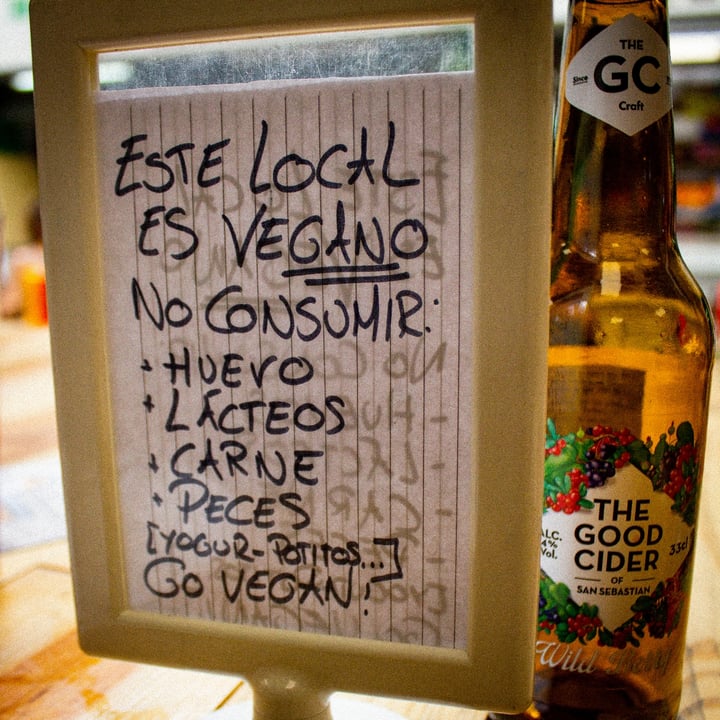 ESTE LOCAL
ES VEGANO
NO CONSUMIR:
+ HUEVO
+ LÁCTEOS
+ CARNE
+ PECES
[YOGUR-POTITOS...]
GO VEGAN!
THE
Since
GC
Craft
ALC.
4%
Vol.
THE
GOOD
CIDER
33cl
OF
SAN SEBASTIAN
Wild